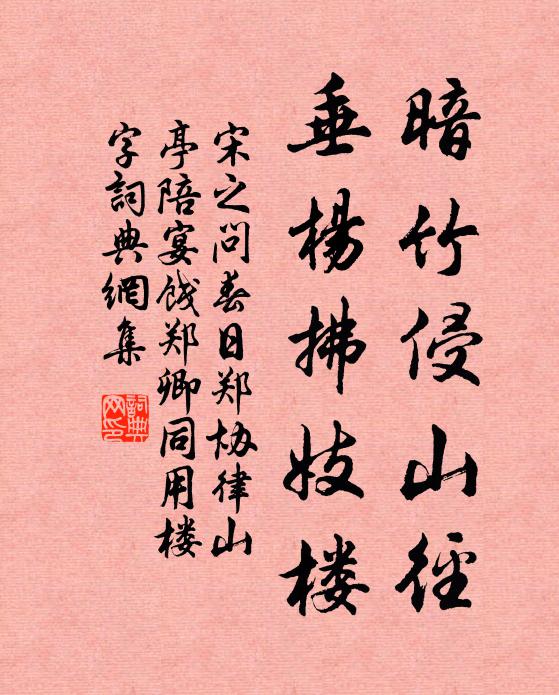 暗竹侵山径
垂楊拂妓楼
宋之问春日郑协律山
亭陪宴饯郑卿同用楼
字詞典網集
詞典
网印